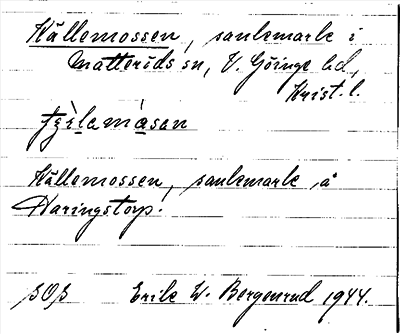 Källemossen, sankmark i
Matteröds sn, V. Göinge hd,
Krist. l.
Källemossen, sankmark å
Haringstorp.
SOS Erik W. Bergenrud 1944.